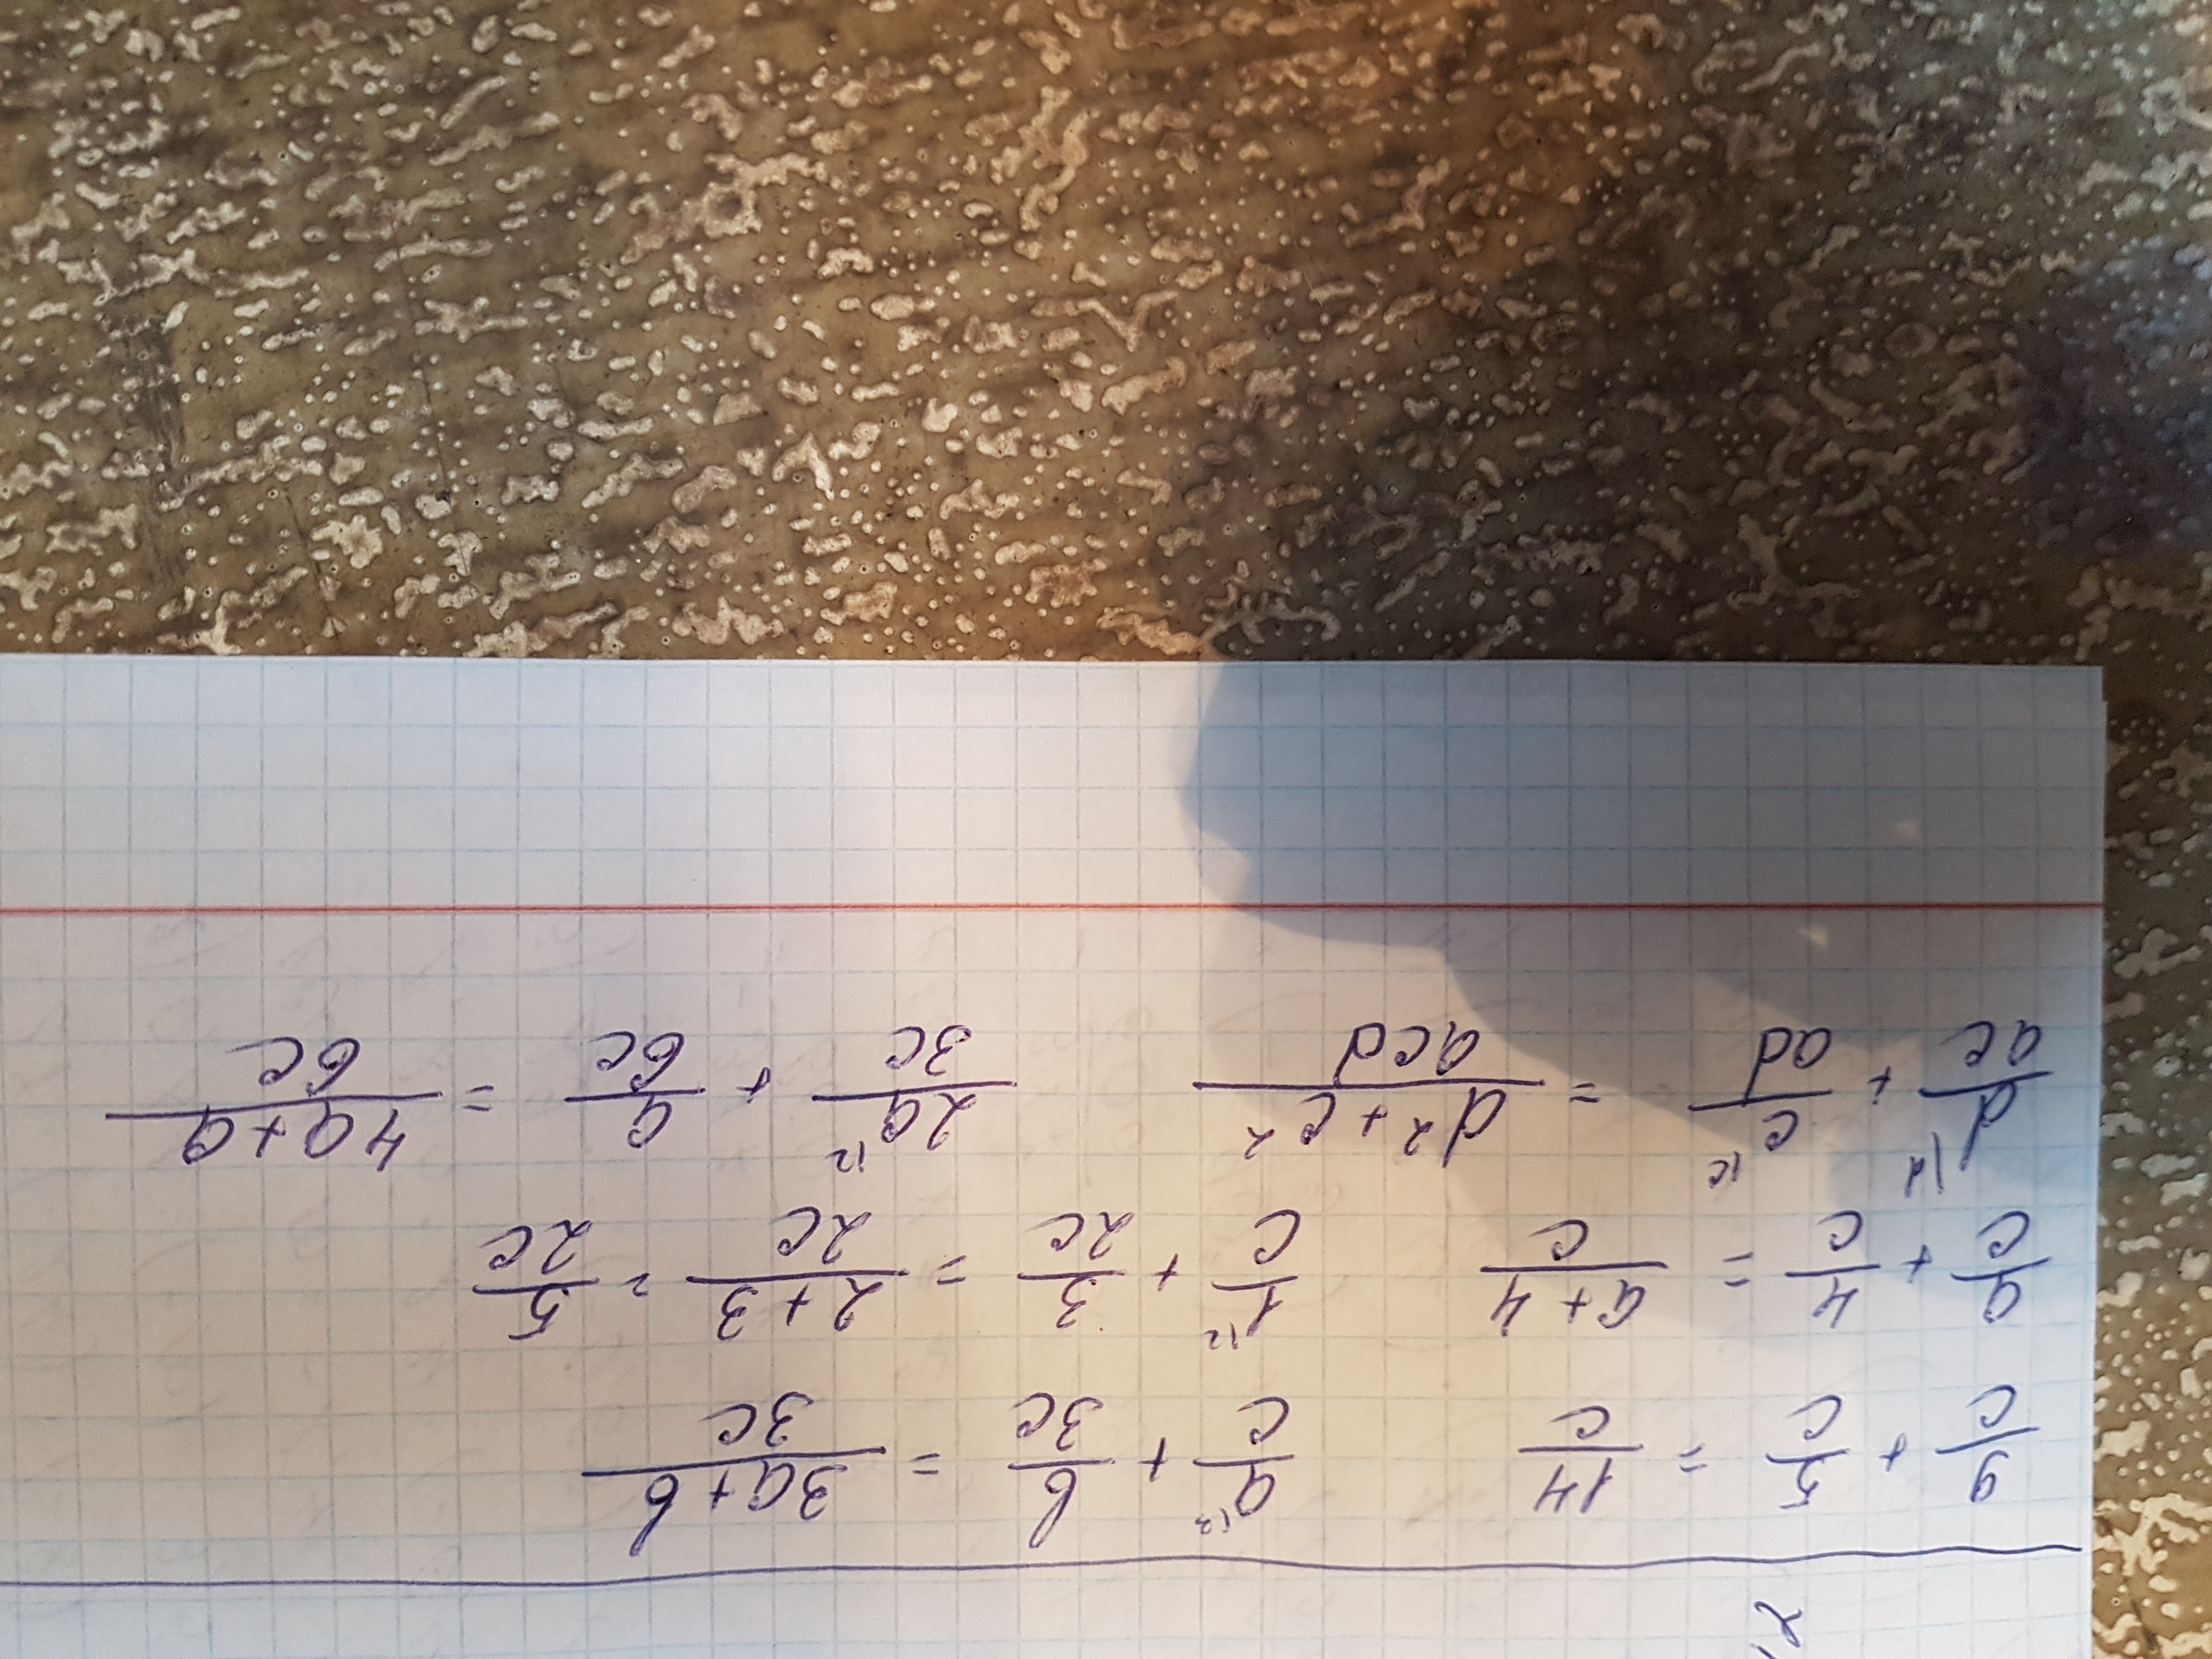 9/c + 5/c = 14/c   a|3/c + b/3c = 3a+b/3c
a/c + 4/c = a+4/c   1|2/c + 3/2c = 2+3/2c = 5/2c
d|d/ac + c|c/ad = d²+c²/acd   2a|2/3c + a/6c = 4a+a/6c